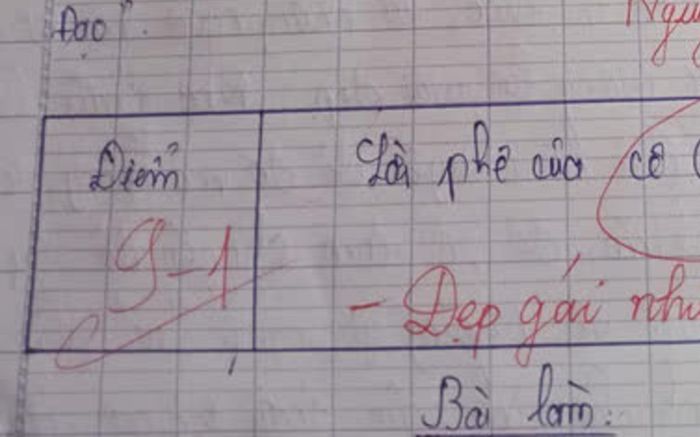 Đạo".
Điểm
Lời phê của cô
9-1
- Đẹp gái
Bài làm: